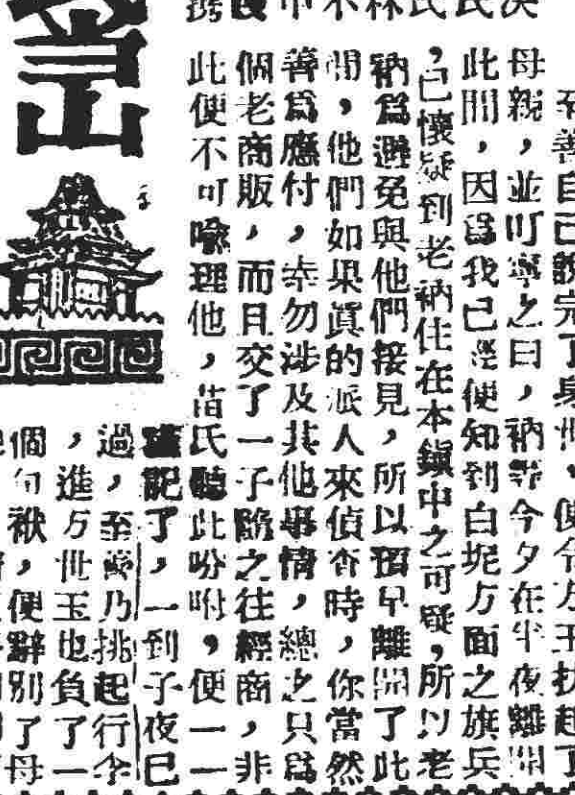 至善自己說完了身世，便令方玉扶起了
母親，並叮嚀之曰，衲等今夕在半夜離開
此間，因爲我已經便知到白坭方面之旗兵
，已懷疑到老衲住在本鎭中之可疑，所以老
衲爲避免與他們接見，所以預早離開了此
間，他們如果眞的派人來偵查時，你當然
善爲應付，幸勿涉及其他事情，總之只爲
個老商販，而且交了一子隨之往經商，非
此便不可喩理他，苗氏聽此吩咐，便一一
記了，一到子夜已
過，至善乃挑起行
，進方世玉也負了一
個包袱，便辭別了母